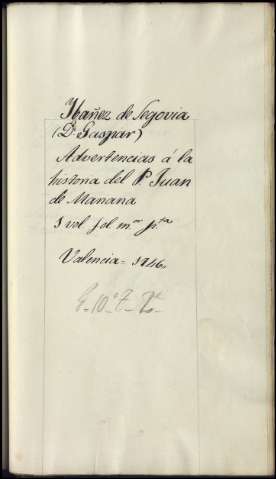 Ybañez de Segovia
(Dn Gaspar)
Advertencias á la
historia del P. Juan
de Manana
1 vol fol mor pta
Valencia = 1746.